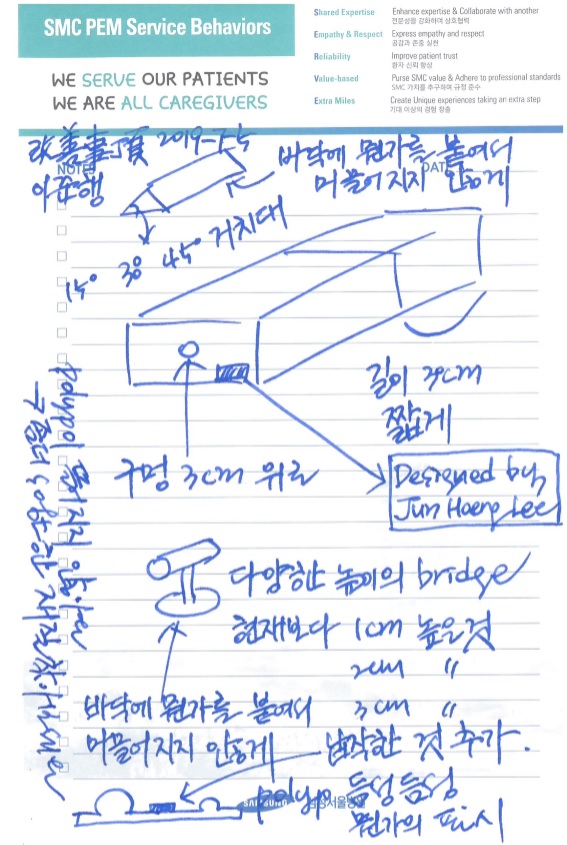 SMC PEM Service Behaviors
WE SERVE OUR PATIENTS
WE ARE ALL CAREGIVERS
Shared Expertise
Enhance expertise & Collaborate with another
전문성을 강화하여 상호협력
Empathy & Respect
Express empathy and respect
공감과 존중 실천
Reliability
Improve patient trust
환자 신뢰 향상
Value-based
Purse SMC value & Adhere to professional standards
SMC 가치를 추구하며 규정 준수
Extra Miles
Create Unique experiences taking an extra step
기대 이상의 경험 창출
NOTES
DAT
改善事項 2019-7-5
이준행
바닥에 뭔가를 붙여서
미끌어지지 않게
15° 30° 45° 거치대
길이 3cm
짧게
구멍 3cm 위로
Designed by,
Jun Haeng Lee
polyp이 떨어지지 않습니다
→ 구멍
다양한 높이의 bridge
현재보다 1cm 높은것
2cm 〃
3cm 〃
바닥에 뭔가를 붙여서
미끌어지지 않게
납작한 것 추가.
polyp 듬성듬성
뭔가의 표시
삼성서울병원